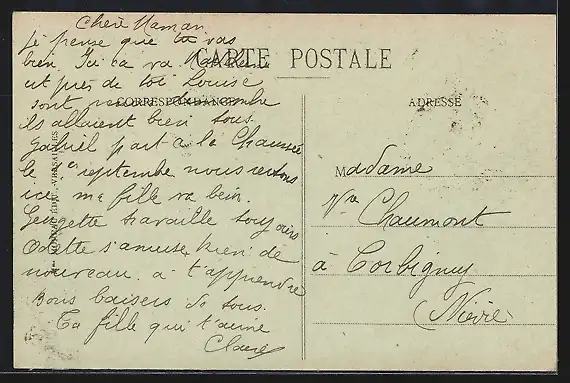 Chère Maman
Je pense que tu vas
CARTE POSTALE
bien. Ici ca va
est près de toi Louise
sont
CORRESPONDANCE
ADRESSE
ils allaient bien tous.
Gabriel part a la
le septembre nous restons
ici, ma fille va bien.
Georgette travaille toujours
Odette s'amuse rien de
nouveau a t'apprendre
Bons baisers de tous.
Ta fille qui t'aime
Claire
Madame
Vve Chaumont
à Corbigny
Nièvre